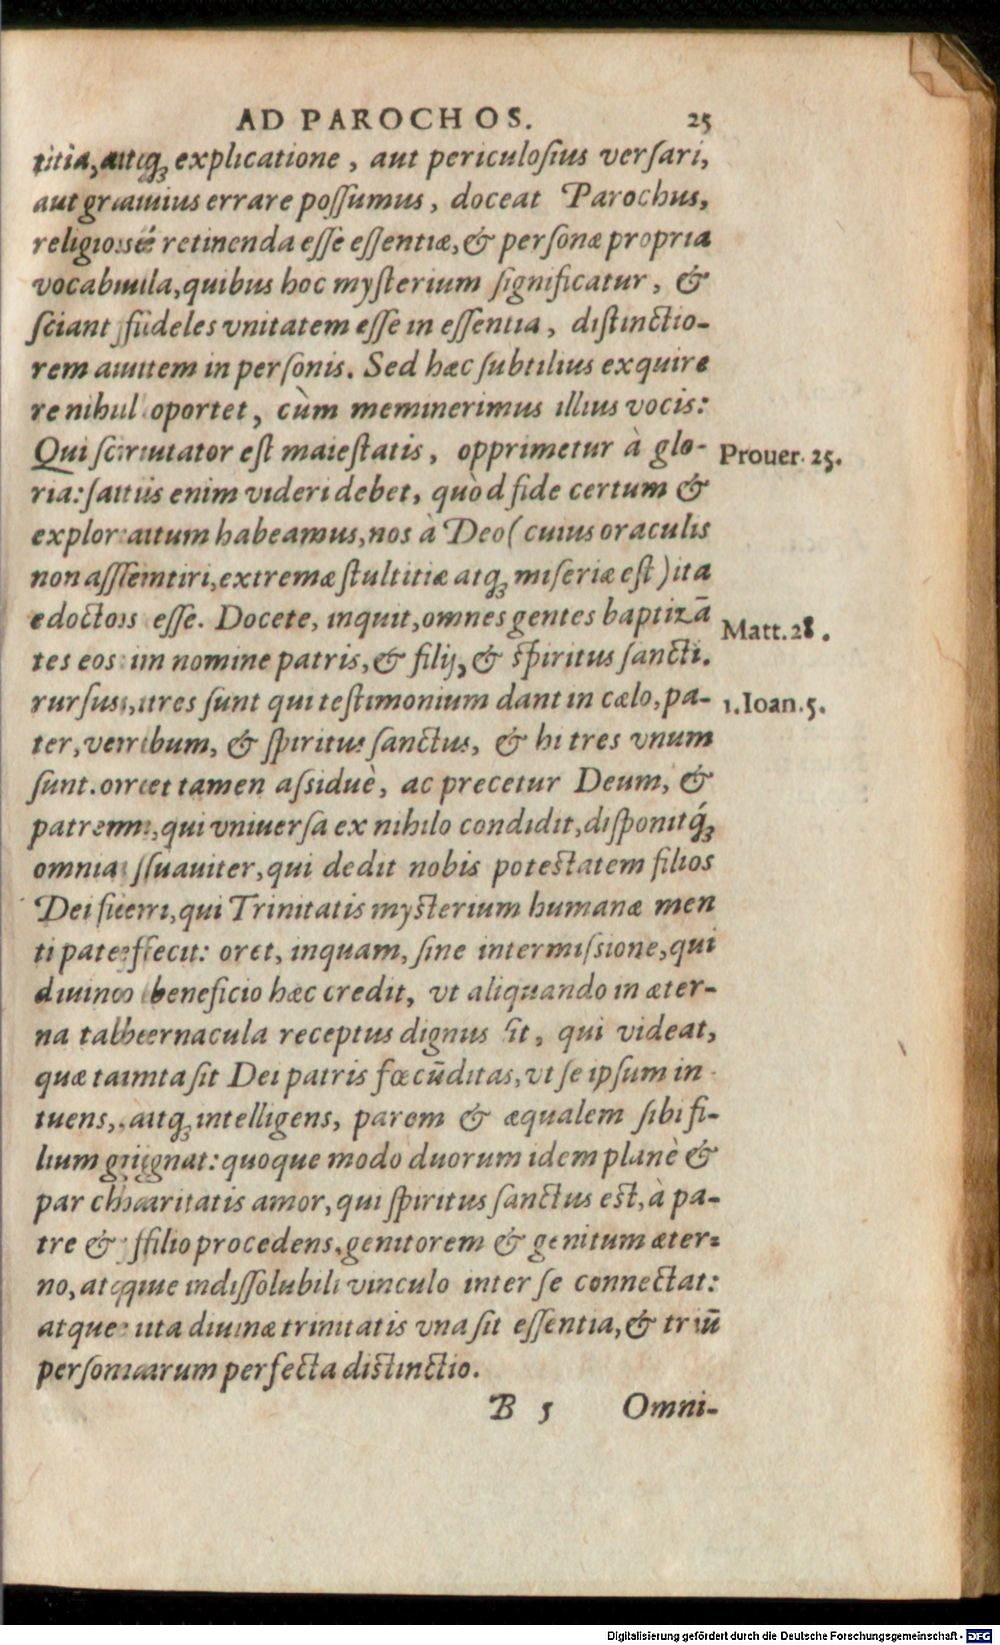 AD PAROCHOS. 25
titia, atq; explicatione, aut periculosius versari,
aut grauius errare possumus, doceat Parochus,
religiosè retinenda esse essentiæ, & personæ propria
vocabula, quibus hoc mysterium significatur, &
sciant fideles vnitatem esse in essentia, distinctio-
nem autem in personis. Sed hæc subtilius exquire
re nihil oportet, cùm meminerimus illius vocis:
Qui scrutator est maiestatis, opprimetur à glo-
Prouer. 25.
ria: satis enim videri debet, quòd fide certum &
exploratum habeamus, nos à Deo (cuius oraculis
non assentiri, extremæ stultitiæ atq; miseriæ est) ita
edoctos esse. Docete, inquit, omnes gentes baptizā
Matt. 28.
tes eos in nomine patris, & filij, & spiritus sancti.
rursus, tres sunt qui testimonium dant in cælo, pa-
1. Ioan. 5.
ter, verbum, & spiritus sanctus, & hi tres vnum
sunt. oret tamen assiduè, ac precetur Deum, &
patrem, qui vniuersa ex nihilo condidit, disponitq́;
omnia suauiter, qui dedit nobis potestatem filios
Dei fieri, qui Trinitatis mysterium humanæ men
ti patefecit: oret, inquam, sine intermissione, qui
diuino beneficio hæc credit, vt aliquando in æter-
na tabernacula receptus dignus sit, qui videat,
quæ tanta sit Dei patris fœcūditas, vt se ipsum in
tuens, atq; intelligens, parem & æqualem sibi fi-
lium gignat: quoque modo duorum idem planè &
par charitatis amor, qui spiritus sanctus est, à pa-
tre & filio procedens, genitorem & genitum æter-
no, atque indissolubili vinculo inter se connectat:
atque ita diuinæ trinitatis vna sit essentia, & triū
personarum perfecta distinctio.
B 5 Omni-
Digitalisierung gefördert durch die Deutsche Forschungsgemeinschaft - DFG